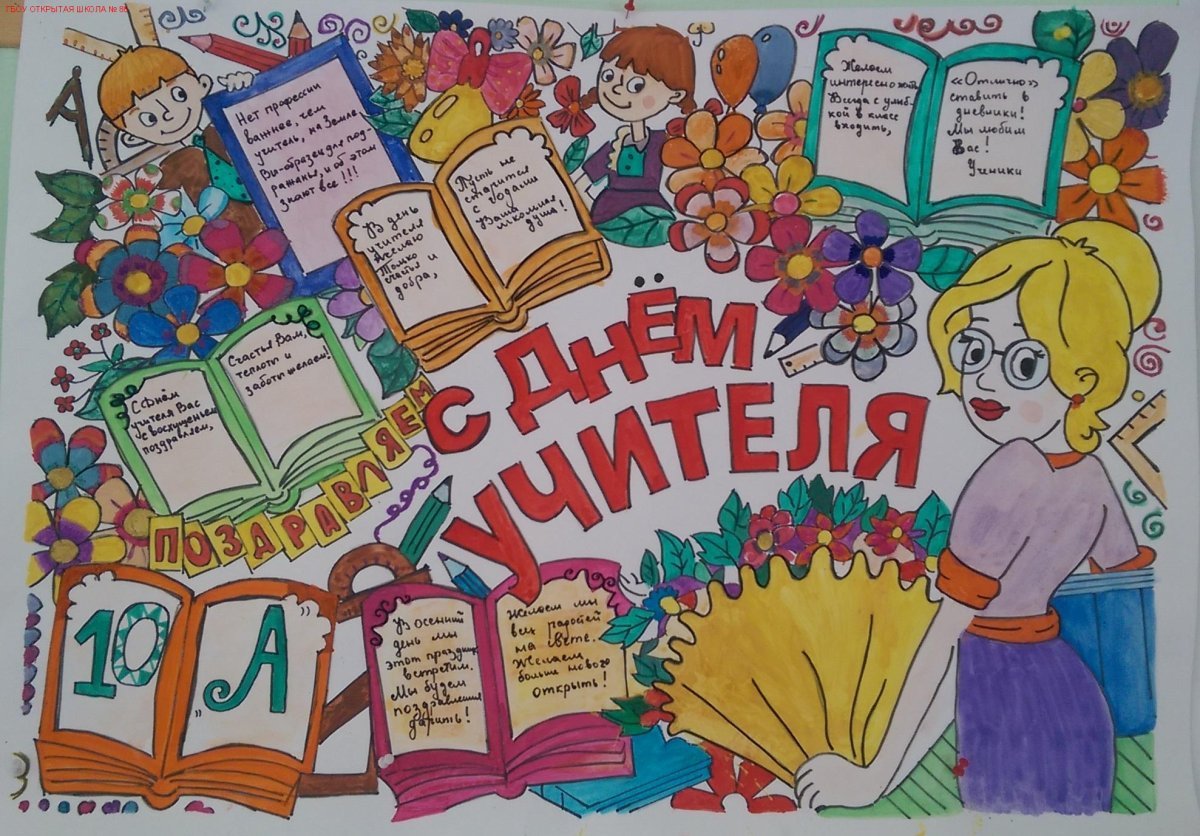 ГБОУ ОТКРЫТАЯ ШКОЛА № 86
А
Нет профессии
важнее, чем
учитель, на Земле.
Вы-образец для под-
ражанья, и об этом
знают все!!!
В день
учителя
Желаю
Только
счастья и
добра,
Пусть не
старится
с годами
Ваша
школьная
душа!
Желаем
интересно жить
Всегда с улыб-
кой в класс
входить,
«Отлично»
ставить в
дневники!
Мы любим
Вас!
Ученики
С Днём
учителя Вас
с восхищеньем
поздравляем,
Счастья Вам,
теплоты и
заботы желаем!
ПОЗДРАВЛЯЕМ
С ДНЁМ
УЧИТЕЛЯ
10
„А”
В осенний
день мы
этот праздник
встретим.
Мы будем
поздравления
дарить!
Желаем мы
всех радостей
на свете.
Желаем
больше нового
открыть!